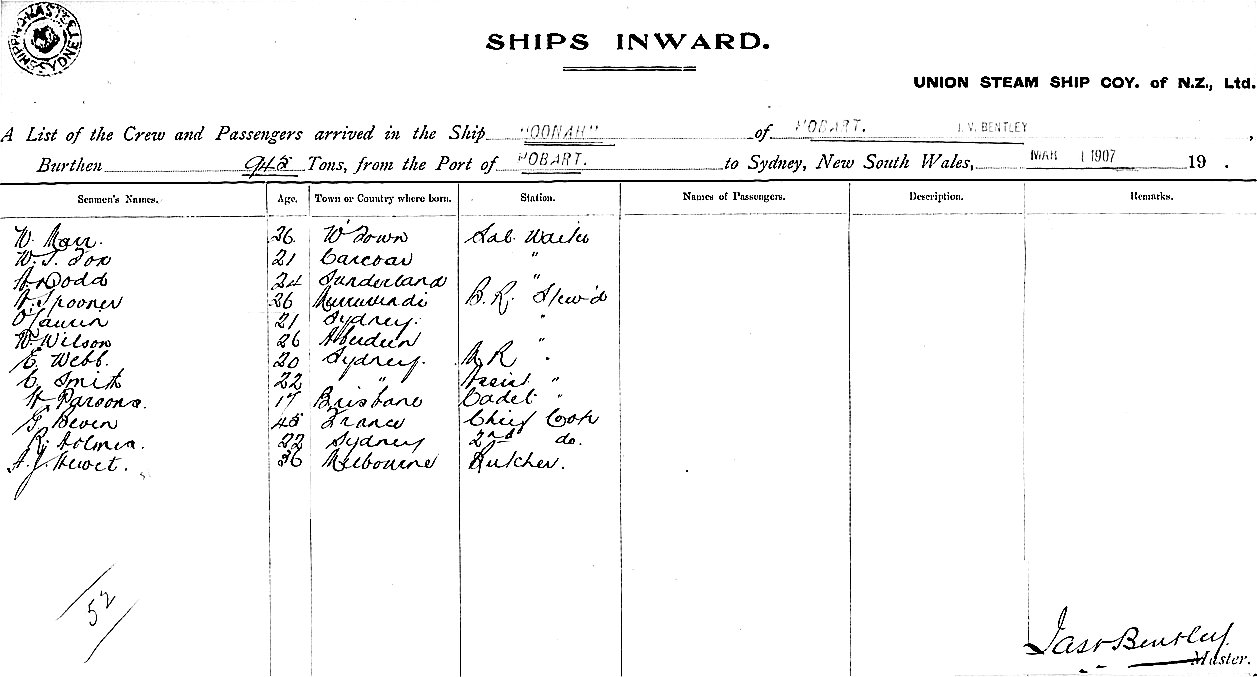 SHIPPING MASTER SYDNEY
SHIPS INWARD.
UNION STEAM SHIP COY. of N.Z., Ltd.
A List of the Crew and Passengers arrived in the Ship "OONAH" of HOBART. J. V. BENTLEY,
Burthen 945 Tons, from the Port of HOBART. to Sydney, New South Wales, MAR 1 1907 19 .
Seamen's Names. Age. Town or Country where born. Station. Names of Passengers. Description. Remarks.
W. Marr. 26 W'Town Sal. Waiter
W. J. Fox 21 Carcoar "
Dodd 24 Sunderland "
Spooner 26 Murrurundi B. R. Stew'd
21 Sydney. "
W. Wilson 26 Aberdeen "
E. Webb. 20 Sydney. "
C. Smith 22 " Assist "
Parsons. 17 Brisbane Cadet "
G. Beven 45 France Chief Cook
R. Holmes. 22 Sydney 2nd do.
A. J. Hewet. 36 Melbourne Butcher.
52
Jas Bentley
Master.